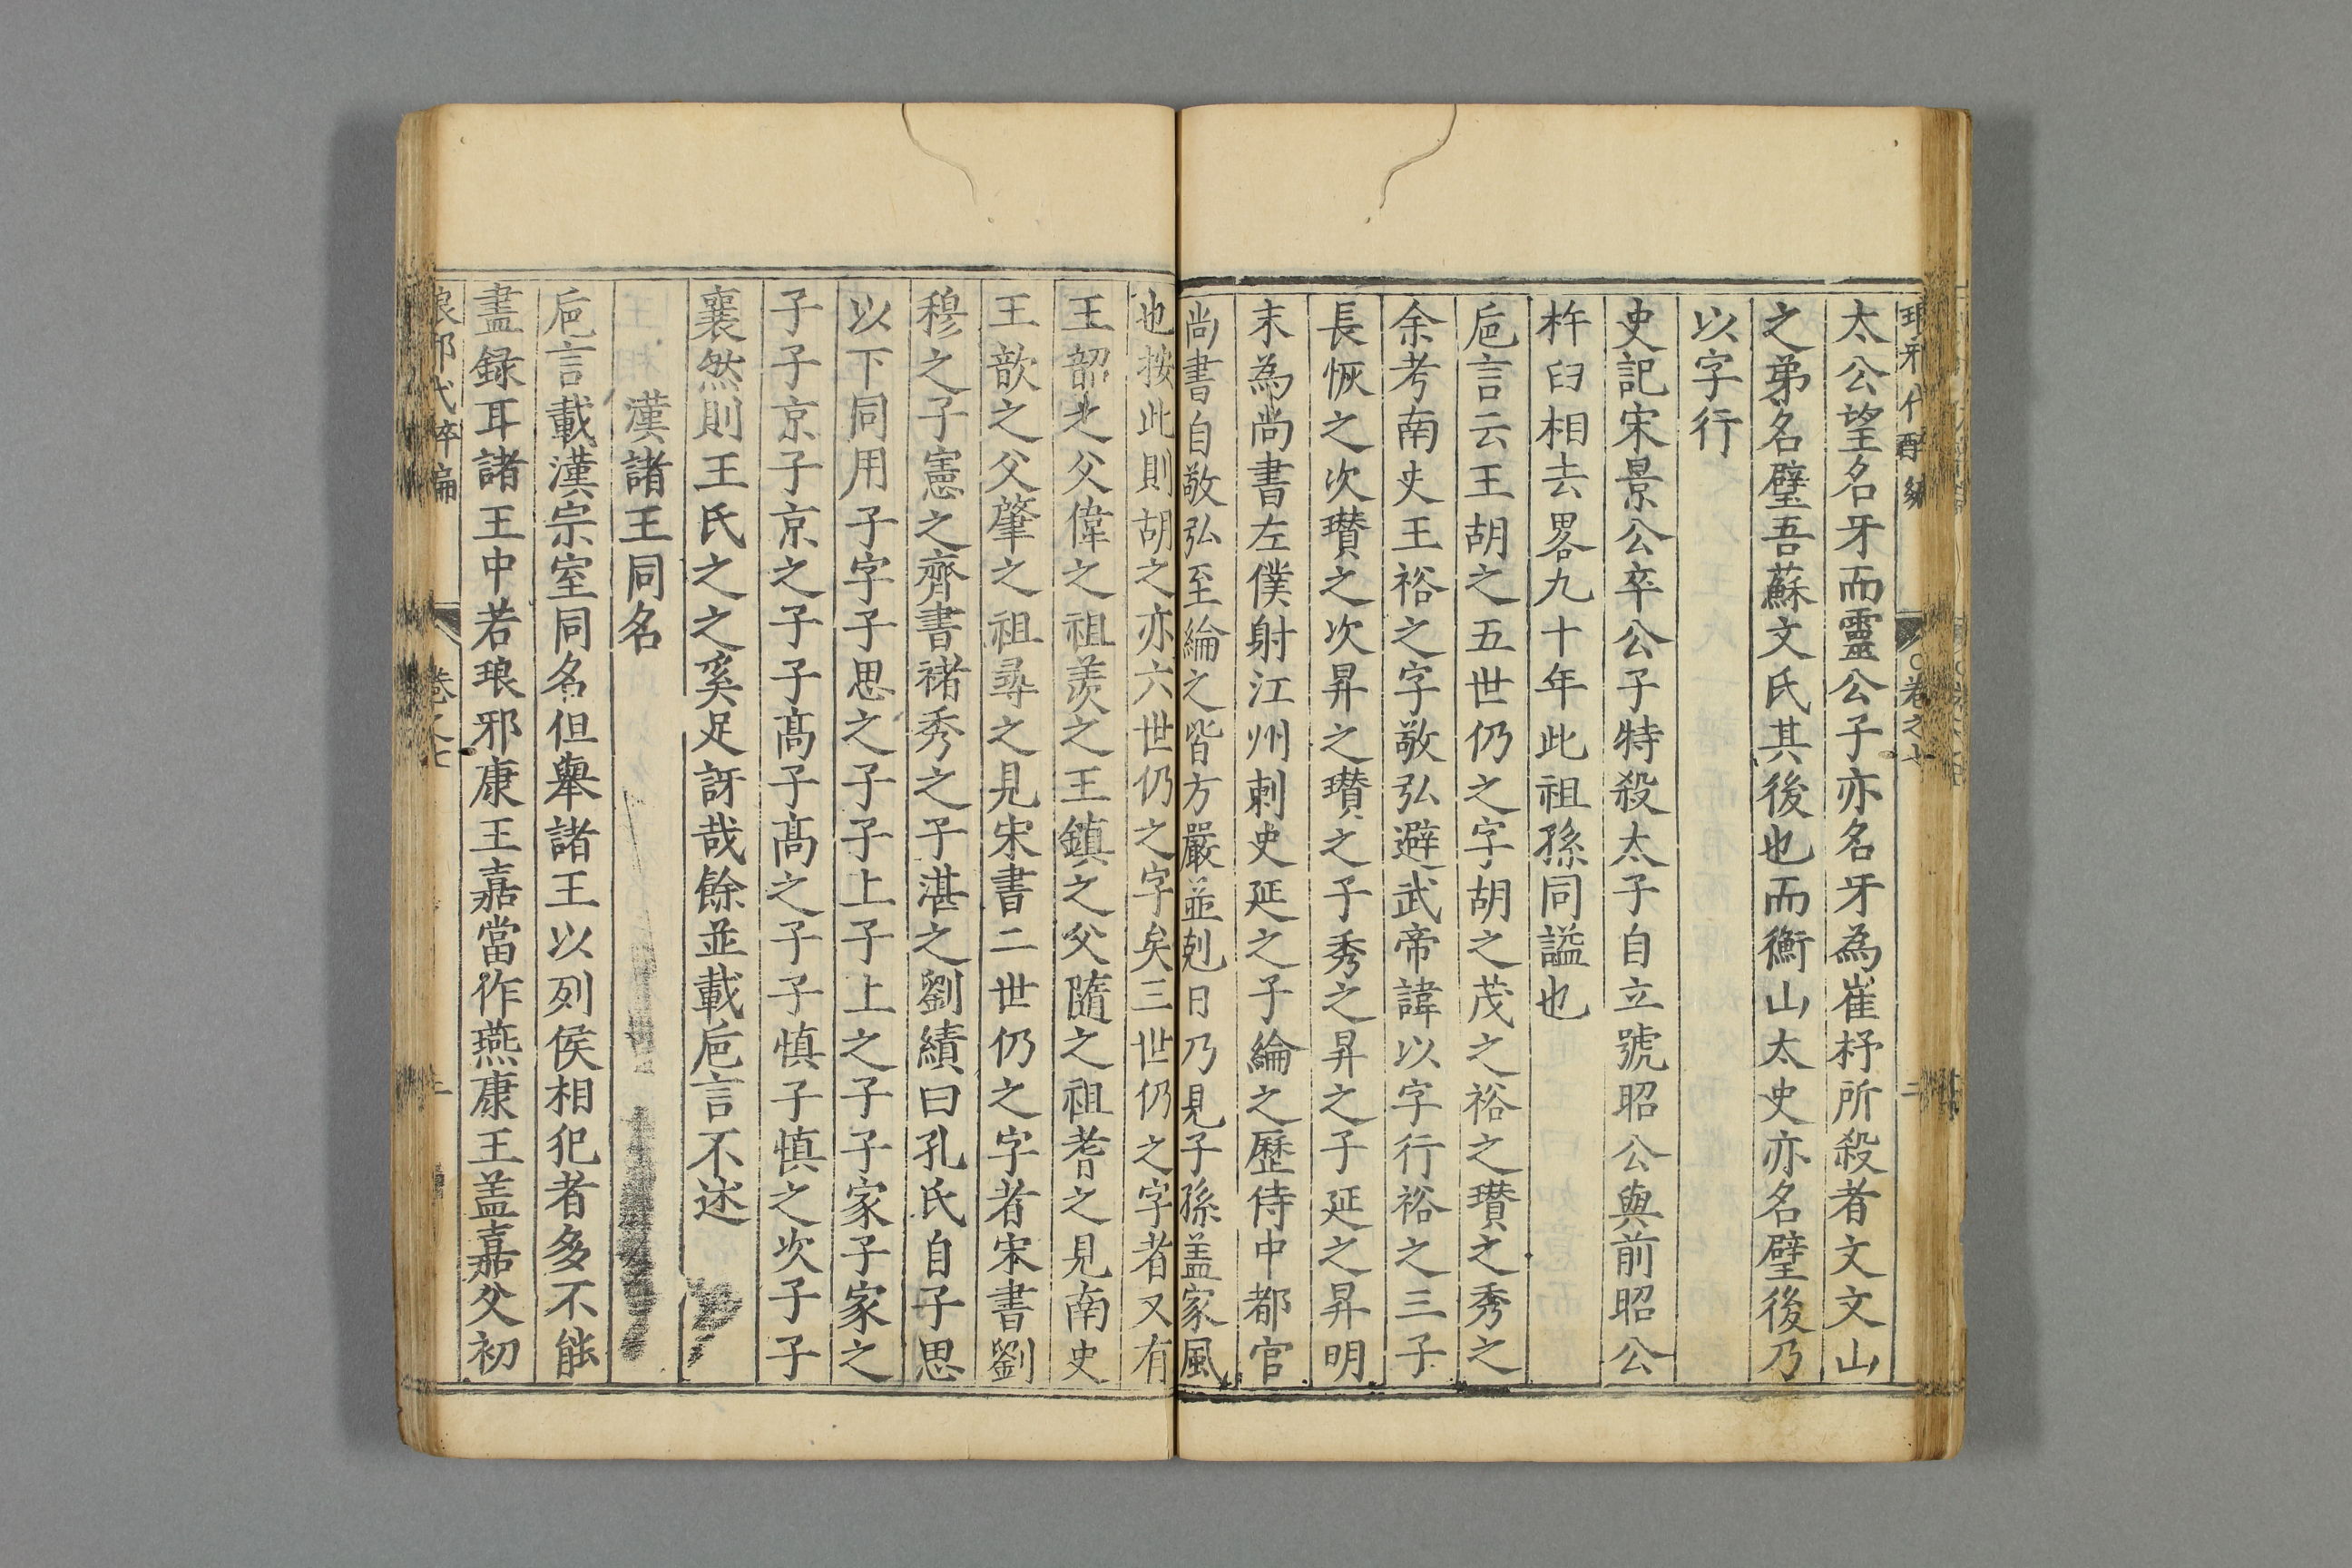 太公望名牙而靈公子亦名牙為崔杼所殺者文文山
之弟名璧吾蘇文氏其後也而衡山太史亦名璧後乃
以字行
史記宋景公卒公子特殺太子自立號昭公與前昭公
杵臼相去畧九十年此祖孫同謚也
巵言云王胡之五世仍之字胡之茂之裕之瓚之秀之
余考南史王裕之字敬弘避武帝諱以字行裕之三子
長恢之次瓚之次昇之瓚之子秀之昇之子延之昇明
末為尚書左僕射江州刺史延之子綸之歷侍中都官
尚書自敬弘至綸之皆方嚴並剋日乃見子孫盖家風
也按此則胡之亦六世仍之字矣三世仍之字者又有
王韶之父偉之祖羨之王鎮之父隨之祖耆之見南史
王歆之父肇之祖尋之見宋書二世仍之字者宋書劉
穆之子憲之齊書褚秀之子湛之劉績曰孔氏自子思
以下同用子字子思之子子上子上之子子家子家之
子子京子京之子子髙子髙之子子慎子慎之次子子
襄然則王氏之之奚足訝哉餘並載巵言不述
漢諸王同名
巵言載漢宗室同名但舉諸王以列侯相犯者多不能
盡録耳諸王中若琅邪康王嘉當作燕康王盖嘉父初
琅邪代醉編
卷之七
二